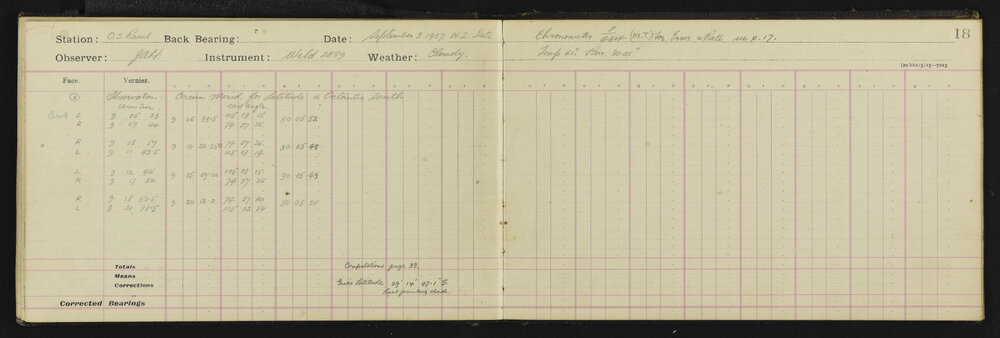 Station: O.S. Raoul Back Bearing: Date: September 8. 1937. N.Z. Date
Chronometer (M.T.) for Error & Rate see p. 17.
18
Observer: Instrument: Wild 2889 Weather: Cloudy.
Temp 61° Bar 30.05"
Face. Vernier.
② Observation: Circum Merid. for Latitude σ Octantis south
Chron. Time Vert Angle.
Circle L 9 05 23 105 03 18
9 06 33.5 30 05 52
R 9 07 44 74 57 26
R 9 08 57 74 57 26
30 05 48
L 9 11 43.5 105 03 14
L 9 12 45 105 03 15
30 05 49
R 9 17 32 74 57 26
R 9 18 50.5 74 57 30
9 20 12 0 30 05 20
L 9 21 33.5 105 02 50
Totals Computations page 38.
Means
Corrections Gives Latitude 29° 14' 47.1" S.
Last pointing clouded
Corrected Bearings